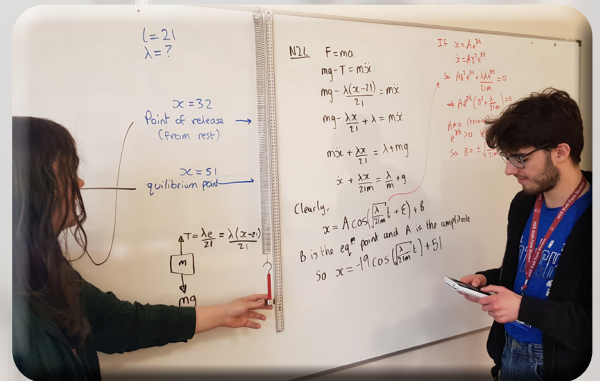 l = 21
λ = ?
x = 32
Point of release
(from rest)
x = 51
equilibrium point
T = λe/21 = λ(x-21)/21
m
mg
N2L F = ma
mg - T = mẍ
mg - λ(x-21)/21 = mẍ
mg - λx/21 + λ = mẍ
mẍ + λx/21 = λ + mg
ẍ + λx/21m = λ/m + g
Clearly,
x = A cos(√λ/21m t + ε) + B
B is the eqᵐ point and A is the amplitude
so x = -19 cos(√λ/21m t) + 51
If x = Ae^γt
ẍ = Aγ²e^γt
so Aγ²e^γt + λAe^γt/21m = 0
⇒ Ae^γt(γ² + λ/21m) = 0
A≠0
e^γt > 0
so γ = ±